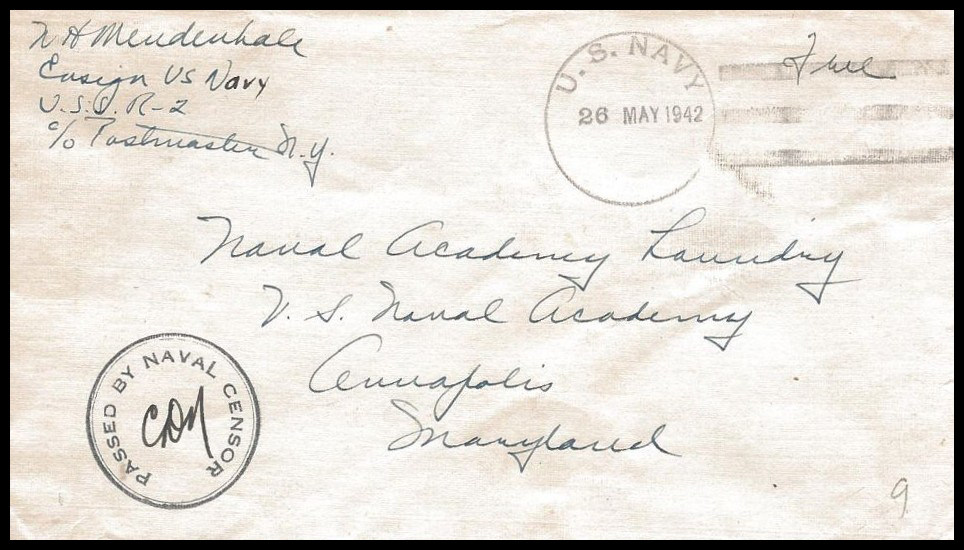 W H Mendenhall
Ensign US Navy
U.S.S. R-2
c/o Postmaster N.Y.
U.S. NAVY
26 MAY 1942
Free
Naval Academy Laundry
U. S. Naval Academy
Annapolis
Maryland
PASSED BY NAVAL CENSOR
9